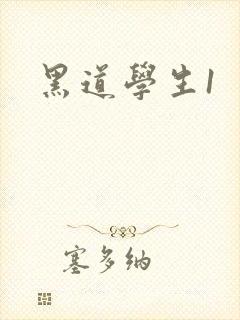 黑道學生1
塞多纳